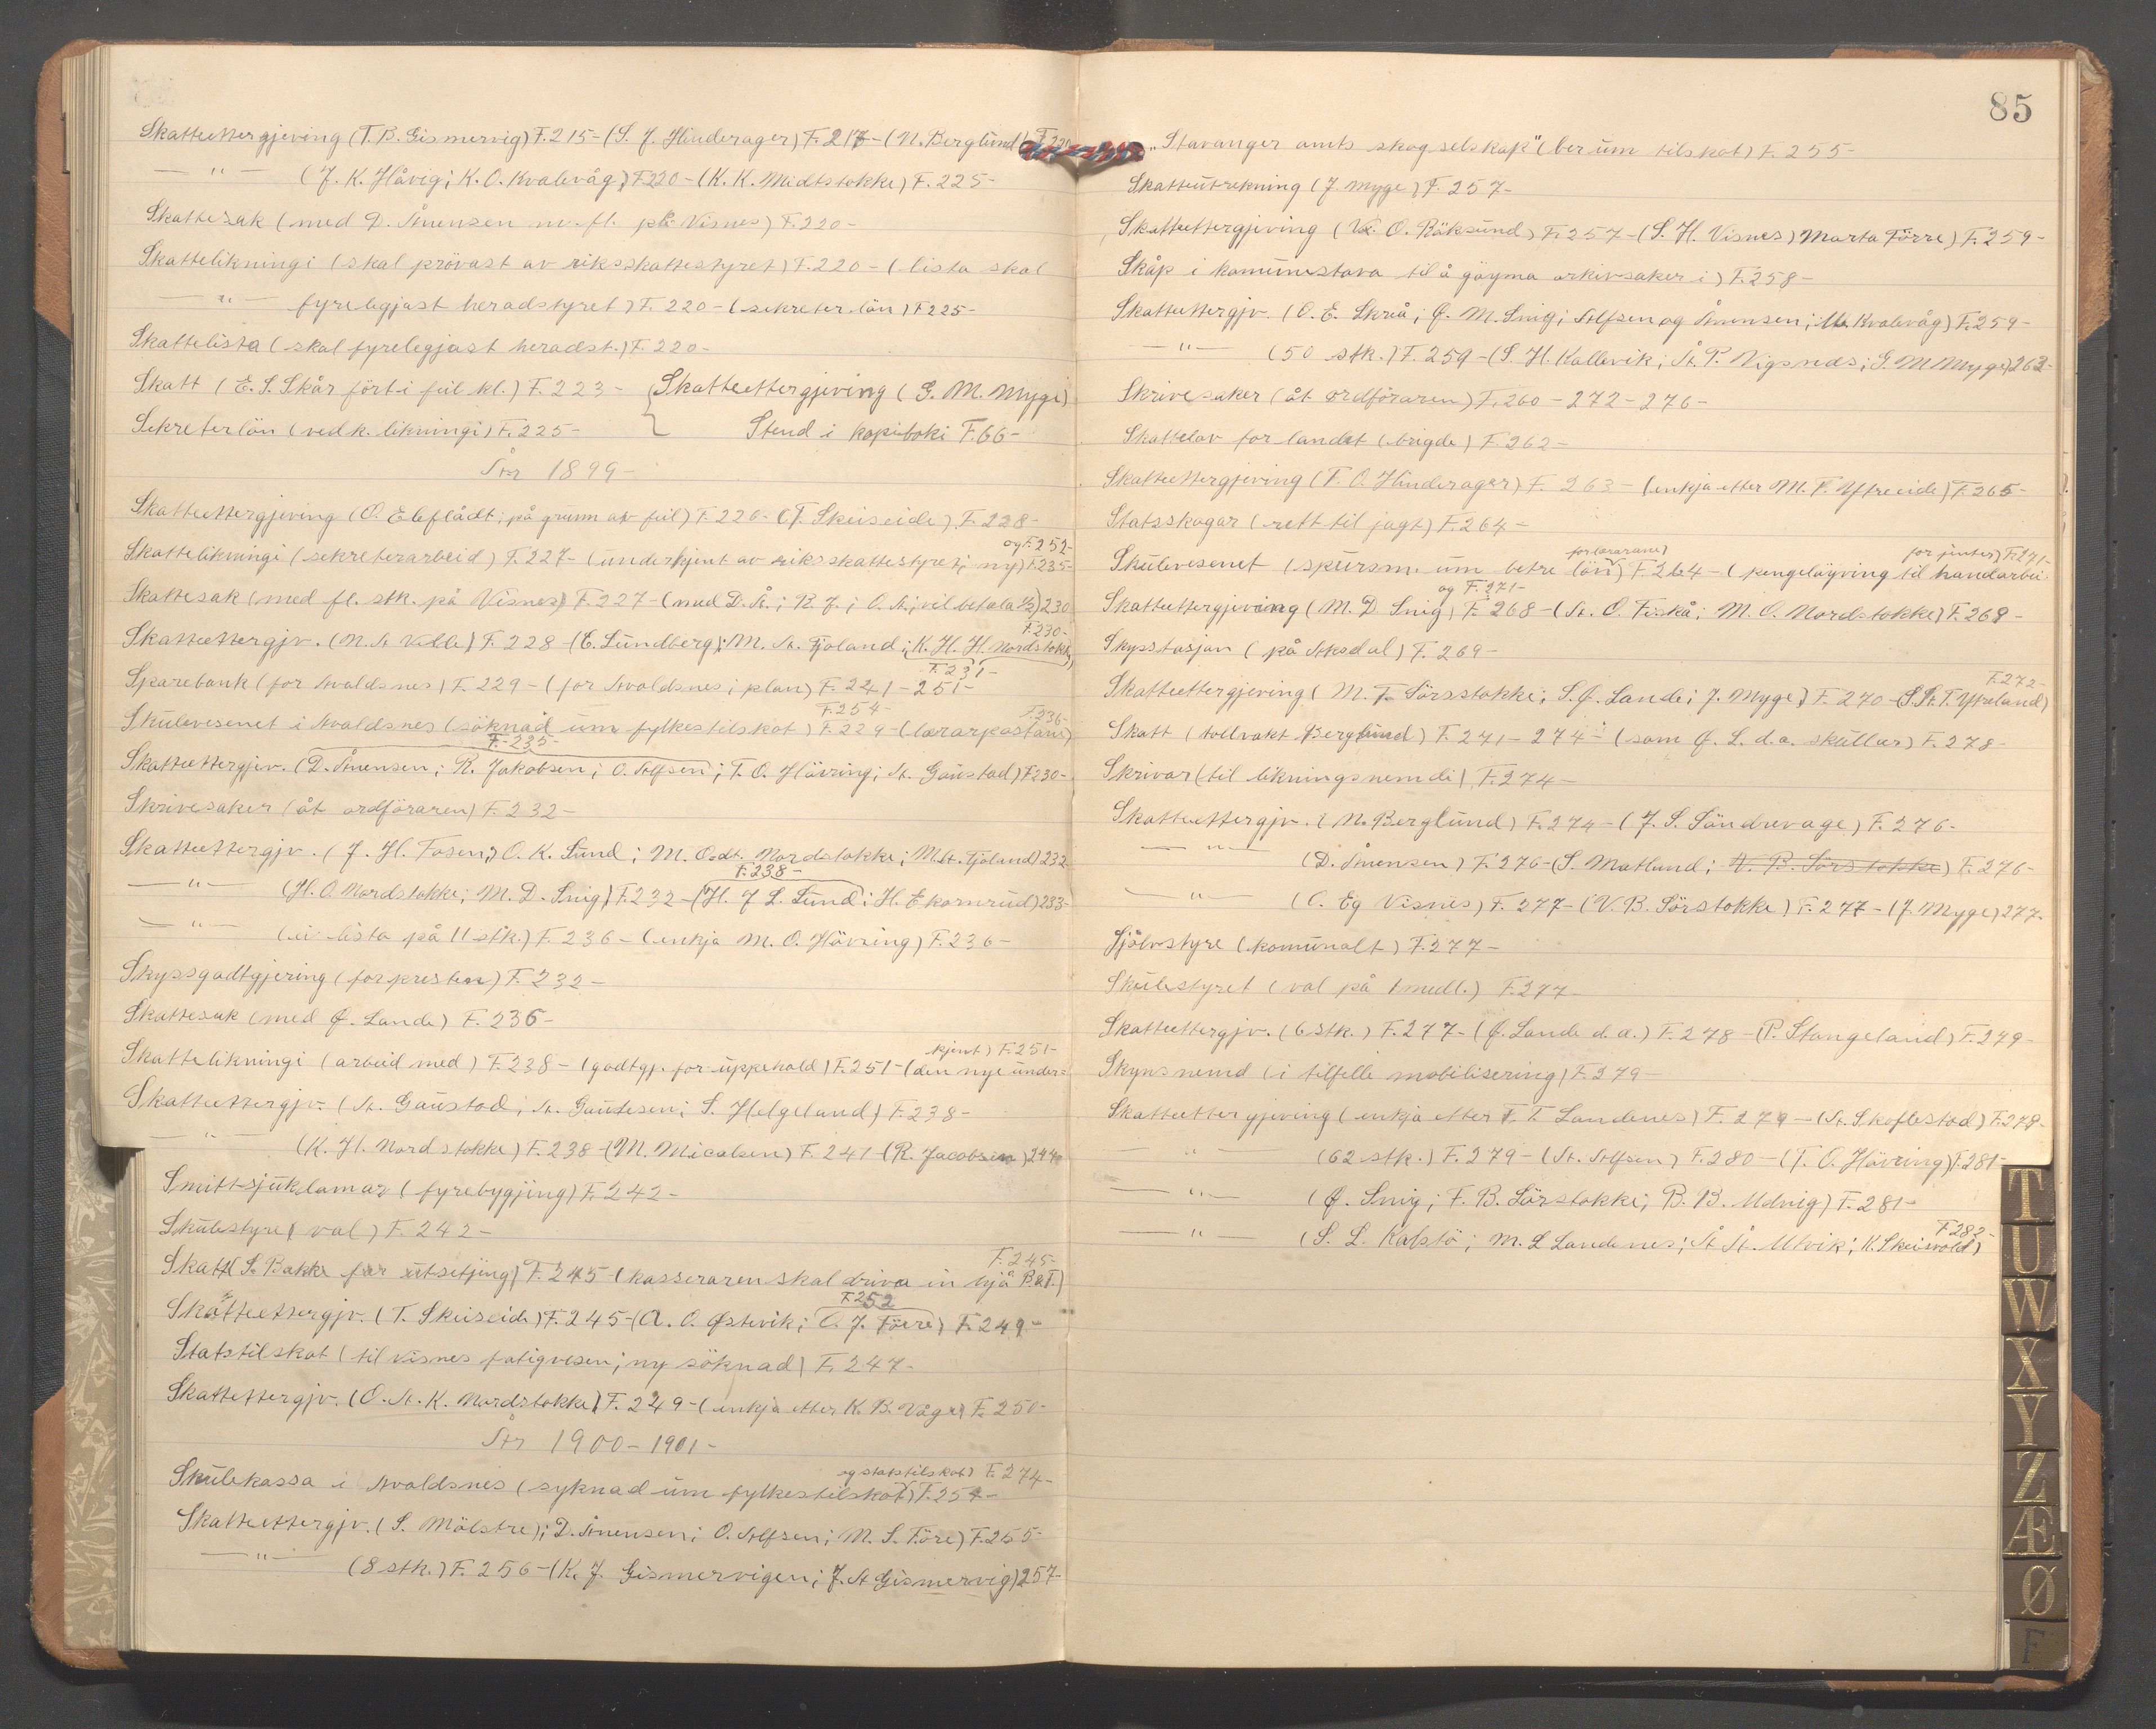 Skatteettergjeving (T. B. Gismervig) F. 215- (S. J. Hinderager) F. 217- (N. Berglund) F. 220
— " — (J. K. Håvig; K. O. Kvalevåg) F. 220- (K. K. Midtstokke) F. 225-
Skattesak (med D. Amensen m. fl. på Visnes) F. 220-
Skattelikningi (skal prövast av riksskattestyret) F. 220- (lista skal
— " — fyrelegjast heradstyret) F. 220- (sekreter lön) F 225-
Skattelista (skal fyrelegjast heradst.) F. 220-
Skatt (E. S. Skår fört i feil kl.) F. 223-
Sekreterlön (ved k. likningi) F. 225-
Skatteettergjeving (G. M. Myge)
Stend i kopiboki F. 66-
År 1899-
Skatteettergjeving (O. Eleflådt; på grunn av feil) F. 226- (T. Skeiseide) F. 228-
og F. 252-
Skattelikningi (sekreterarbeid) F. 227- (underkjent av riksskattestyret; ny) F. 235-
Skattesak (med fl. stk. på Visnes) F. 227- (med D. A.; R. J.; O. A.; vil betala ½) 230
F. 230-
Skatteettergjv. (N. A Valle) F. 228 (E. Lundberg); M. A. Fjoland; K. H. H. Nordstokke)
F. 231-
Sparebank (for Avaldsnes) F. 229- (for Avaldsnes; plan) F. 241- 251-
F. 254- F. 236-
Skulevesenet i Avaldsnes (söknad um fylkestilskot) F. 229- (lærarpostane)
F. 235-
Skatteettergjev. (D. Amensen; R. Jakobsen; O. Alfsen; T. O. Hävring; A. Gaustad) F. 230-
Skrivesaker (åt ordföraren) F. 232-
Skatteettergjv. (J. H. Fosen; O. K. Lund; M. O. Nordstokke; M. A. Fjoland) 232
F. 238-
— " — (H. O. Nordstokke; M. D. Snig) F. 232- (H. J L. Lund; H. Ekornrud) 233-
— " — (ei lista på 11 stk.) F. 236- (enkja M. O. Hävring) F. 236-
Skyssgodtgjering (for presten) F. 232-
Skattesak (med Q. Lande) F. 236-
kjent) F. 251-
Skattelikningi (arbeid med) F. 238- (godtgj. for uppehald) F. 251- (den nye under-
Skatteettergjv. (A. Gaustad; A. Gautesen; S. Helgeland) F. 238-
— " — (K. H. Nordstokke) F. 238- (M. Micalsen) F. 241- (R. Jacobsen) 244
Smittsjuklamar (fyrebygjing) F. 242-
Skulestyre (val) F. 242-
F. 245-
Skatt (S. Bakke for utsetjing) F. 245- (kasseraren skal driva in hjå B. & T.)
F. 252
Skatteettergjv. (T. Skeiseide) F. 245- (A. O. Østevik; O. J. Förre) F. 249-
Statstilskot (til Visnes fatigvesen; ny söknad) F. 247-
Skattettergjv. (O. A. K. Nordstokke) F. 249- (enkja etter K. B. Våge) F. 250-
År 1900-1901-
og statstilskot) F. 274-
Skulekassa i Avaldsnes (syknad um fylkestilskot) F. 254-
Skatteettergjv. (S. Mölstre); D. Amensen; O. Alfsen; M. S. Före) F. 255-
— " — (8 stk.) F. 256- (K. J. Gismervigen; J. A Gismervig) 257-
85
"Stavanger amts skogselskap" (ber um tilskot) F. 255-
Skatteutrekning (J. Myge) F. 257-
Skatteettergjeving (O. Räksund) F. 257- (S. H. Visnes) Marta Förre) F. 259-
Skåp i komunestova til å göyma arkivsaker i) F. 258-
Skatteettergjv. (O. E. Skreå; Q. M. Snig; Alfsen og Amensen; Kvalevåg) F. 259-
— " — (50 stk.) F. 259- (S. H. Kallevik; A. P. Vigsnes; G. M Myge) 263-
Skrivesaker (åt ordföraren) F. 260- 272- 276-
Skattelov for landet (brigde) F. 262-
Skatteettergjeving (T. O. Hinderager) F. 263- (enkja etter M. T. Ytreeide) F. 265-
Statsskogar (rett til jagt) F. 264-
for lærarane) for jenter) F. 271-
Skulevesenet (spursm. um betre lön) F. 264- (pengelöyving til handarbei
og F. 271-
Skatteettergjeving (M. D Snig) F. 268- (A. O. Feskå; M. O. Nordstokke) F. 268-
Skysstasjon (på Aksdal) F. 269-
F. 272-
Skatteettergjeving (M. T. Sörsstokke; S. Q. Lande; J. Myge) F. 270- (S. A. T. Ytreland)
Skatt (tollvakt Berglund) F. 271- 274- (som Q. L. d. a. skullar) F. 278-
Skrivar (til likningsnemdi) F. 274-
Skatteettergjv. (N. Berglund) F. 274- (J. S. Söndrevage) F. 276-
— " — (D. Amensen) F. 276- (S. Matlund; V. B. Sörstokke) F. 276-
— " — (O. Eg Visnes) F. 277- (V. B. Sörstokke) F. 277- (J. Myge) 277.
Sjölvstyre (komunalt) F. 277-
Skulestyret (val på 1 medl.) F. 277-
Skatteettergjv. (6 stk.) F. 277- (Q. Lande d. a.) F. 278- (P. Stangeland) F. 279-
Skynsnemd (i tilfelle mobilisering) F. 279-
Skatteettergjeving (enkja etter T. T Landenes) F. 279- (A. Skeflestad) F. 278-
— " — (62 stk.) F. 279- (A. Alfsen) F. 280- (T. O. Hävring) F. 281-
— " — (Q. Snig; F. B. Sörstokke; B. B. Udnig) F. 281-
F. 282-
— " — (S. L. Kalstö; M. L Landenes; A. A. Utvik; K. Skeisvold)
T
U
W
X
Y
Z
Æ
Ø
F